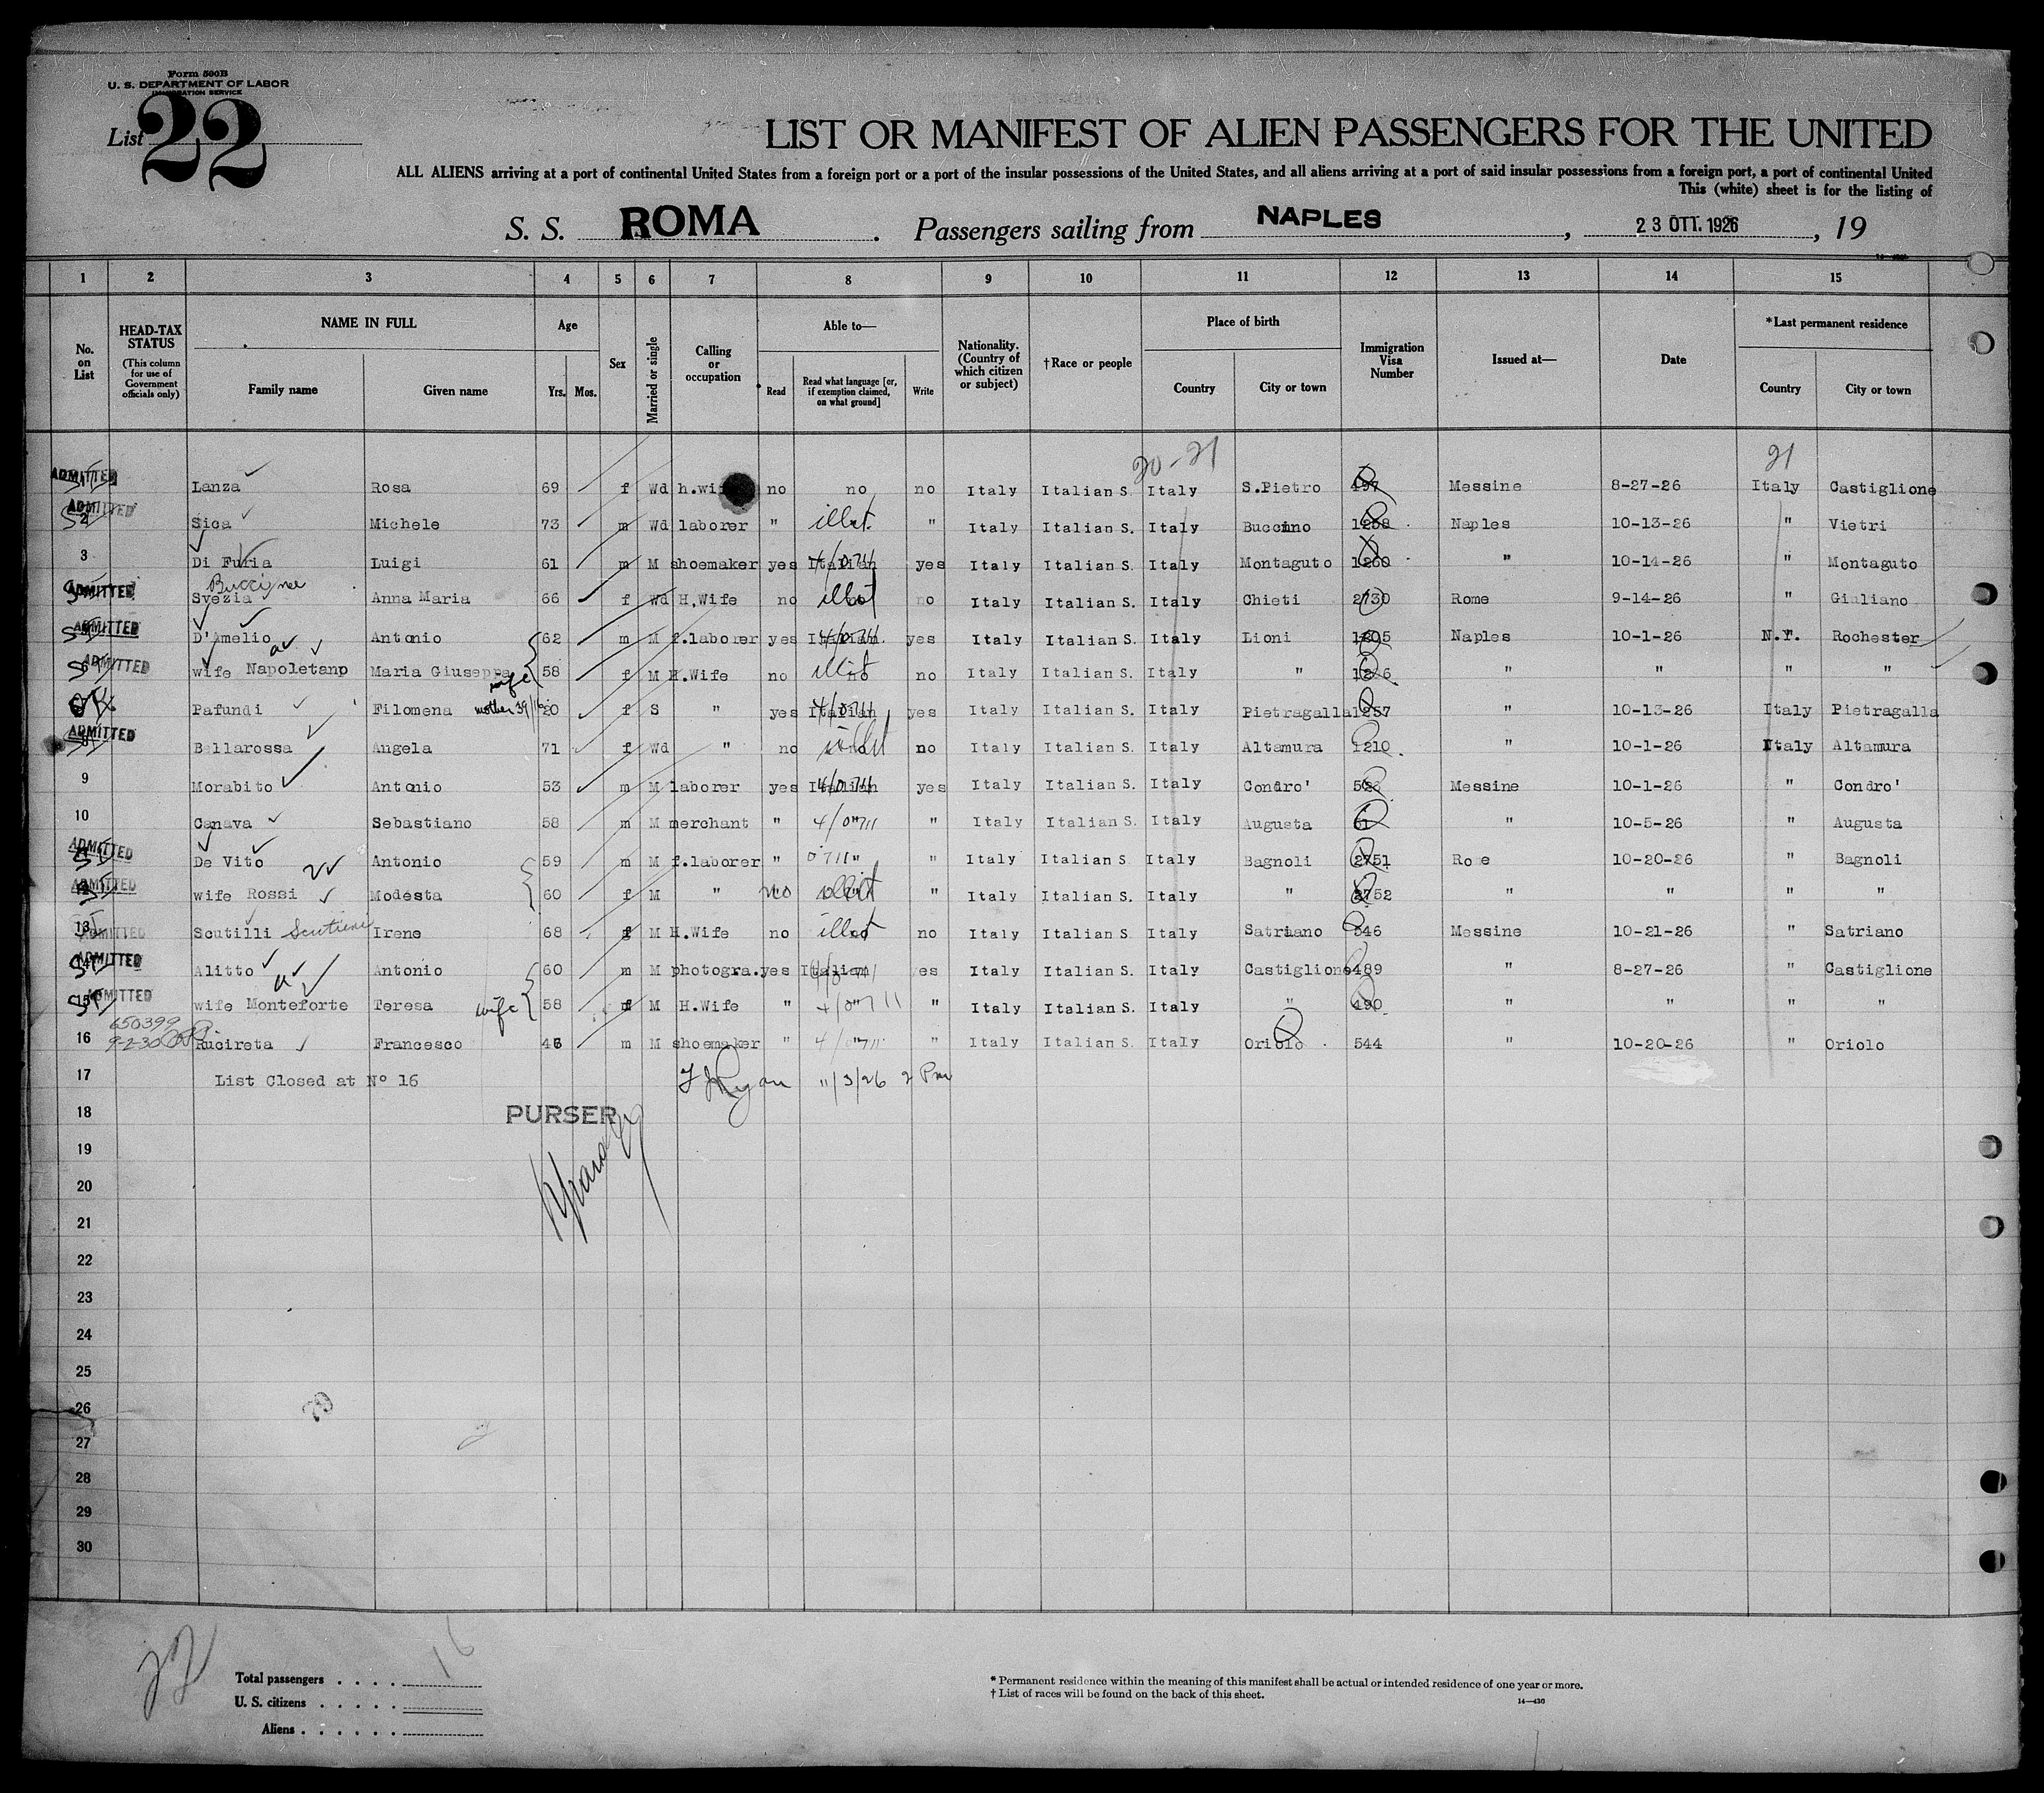 Form 500B
U. S. DEPARTMENT OF LABOR
IMMIGRATION SERVICE
List 22
LIST OR MANIFEST OF ALIEN PASSENGERS FOR THE UNITED
ALL ALIENS arriving at a port of continental United States from a foreign port or a port of the insular possessions of the United States, and all aliens arriving at a port of said insular possessions from a foreign port, a port of continental United
This (white) sheet is for the listing of
S. S. ROMA. Passengers sailing from NAPLES, 23 OTT. 1926, 19
1 2 3 4 5 6 7 8 9 10 11 12 13 14 15
No. on List
HEAD-TAX STATUS (This column for use of Government officials only)
NAME IN FULL
Family name Given name
Age
Yrs. Mos.
Sex
Married or single
Calling or occupation
Able to—
Read Read what language [or, if exemption claimed, on what ground] Write
Nationality. (Country of which citizen or subject)
†Race or people
Place of birth
Country City or town
Immigration Visa Number
Issued at—
Date
*Last permanent residence
Country City or town
20-21 21
ADMITTED Lanza Rosa 69 f Wd h.wi no no no Italy Italian S. Italy S.Pietro 497 Messine 8-27-26 Italy Castiglione
ADMITTED 2 Sica Michele 73 m Wd laborer " illit. " Italy Italian S. Italy Buccino 1258 Naples 10-13-26 " Vietri
3 Di Furia Luigi 61 m M shoemaker yes Italian yes Italy Italian S. Italy Montaguto 1260 " 10-14-26 " Montaguto
ADMITTED Svezia Anna Maria 66 f Wd H.Wife no illit no Italy Italian S. Italy Chieti 2730 Rome 9-14-26 " Giuliano
ADMITTED D'Amelio Antonio 62 m M f.laborer yes Italian yes Italy Italian S. Italy Lioni 1205 Naples 10-1-26 N.Y. Rochester
ADMITTED 6 wife Napoletano Maria Giuseppa wife 58 f M H.Wife no illit no no Italy Italian S. Italy " " " " "
Pafundi Filomena mother 39/16 20 f S " yes Italian yes Italy Italian S. Italy Pietragalla 1257 " 10-13-26 Italy Pietragalla
ADMITTED 8 Bellarossa Angela 71 f Wd " no illit no Italy Italian S. Italy Altamura 1210 " 10-1-26 Italy Altamura
9 Morabito Antonio 53 m M laborer yes Italian yes Italy Italian S. Italy Condro' Messine 10-1-26 " Condro'
10 Canava Sebastiano 58 m M merchant " " " Italy Italian S. Italy Augusta 61 " 10-5-26 " Augusta
ADMITTED De Vito Antonio 59 m M f.laborer " " " Italy Italian S. Italy Bagnoli 2751 Rome 10-20-26 " Bagnoli
ADMITTED 12 wife Rossi Modesta 60 f M " no illit " Italy Italian S. Italy " 2752 " " " "
13 ADMITTED Scutilli Irene 68 f M H.Wife no illit no Italy Italian S. Italy Satriano 546 Messine 10-21-26 " Satriano
ADMITTED 14 Alitto Antonio 60 m M photogra. yes Italian yes Italy Italian S. Italy Castiglione 489 " 8-27-26 " Castiglione
ADMITTED 15 wife Monteforte Teresa wife 58 f M H.Wife " " " Italy Italian S. Italy " 490 " " " "
650399
9-2-30
16 Rucireta Francesco 46 m M shoemaker " " " Italy Italian S. Italy Oriolo 544 " 10-20-26 " Oriolo
17 List Closed at Nº 16 Ryan 11/3/26 2 Pm
18 PURSER
19
20
21
22
23
24
25
26
27
28
29
30
79
22
16
Total passengers . . . .
U. S. citizens . . . . .
Aliens . . . . . .
* Permanent residence within the meaning of this manifest shall be actual or intended residence of one year or more.
† List of races will be found on the back of this sheet.
14—436